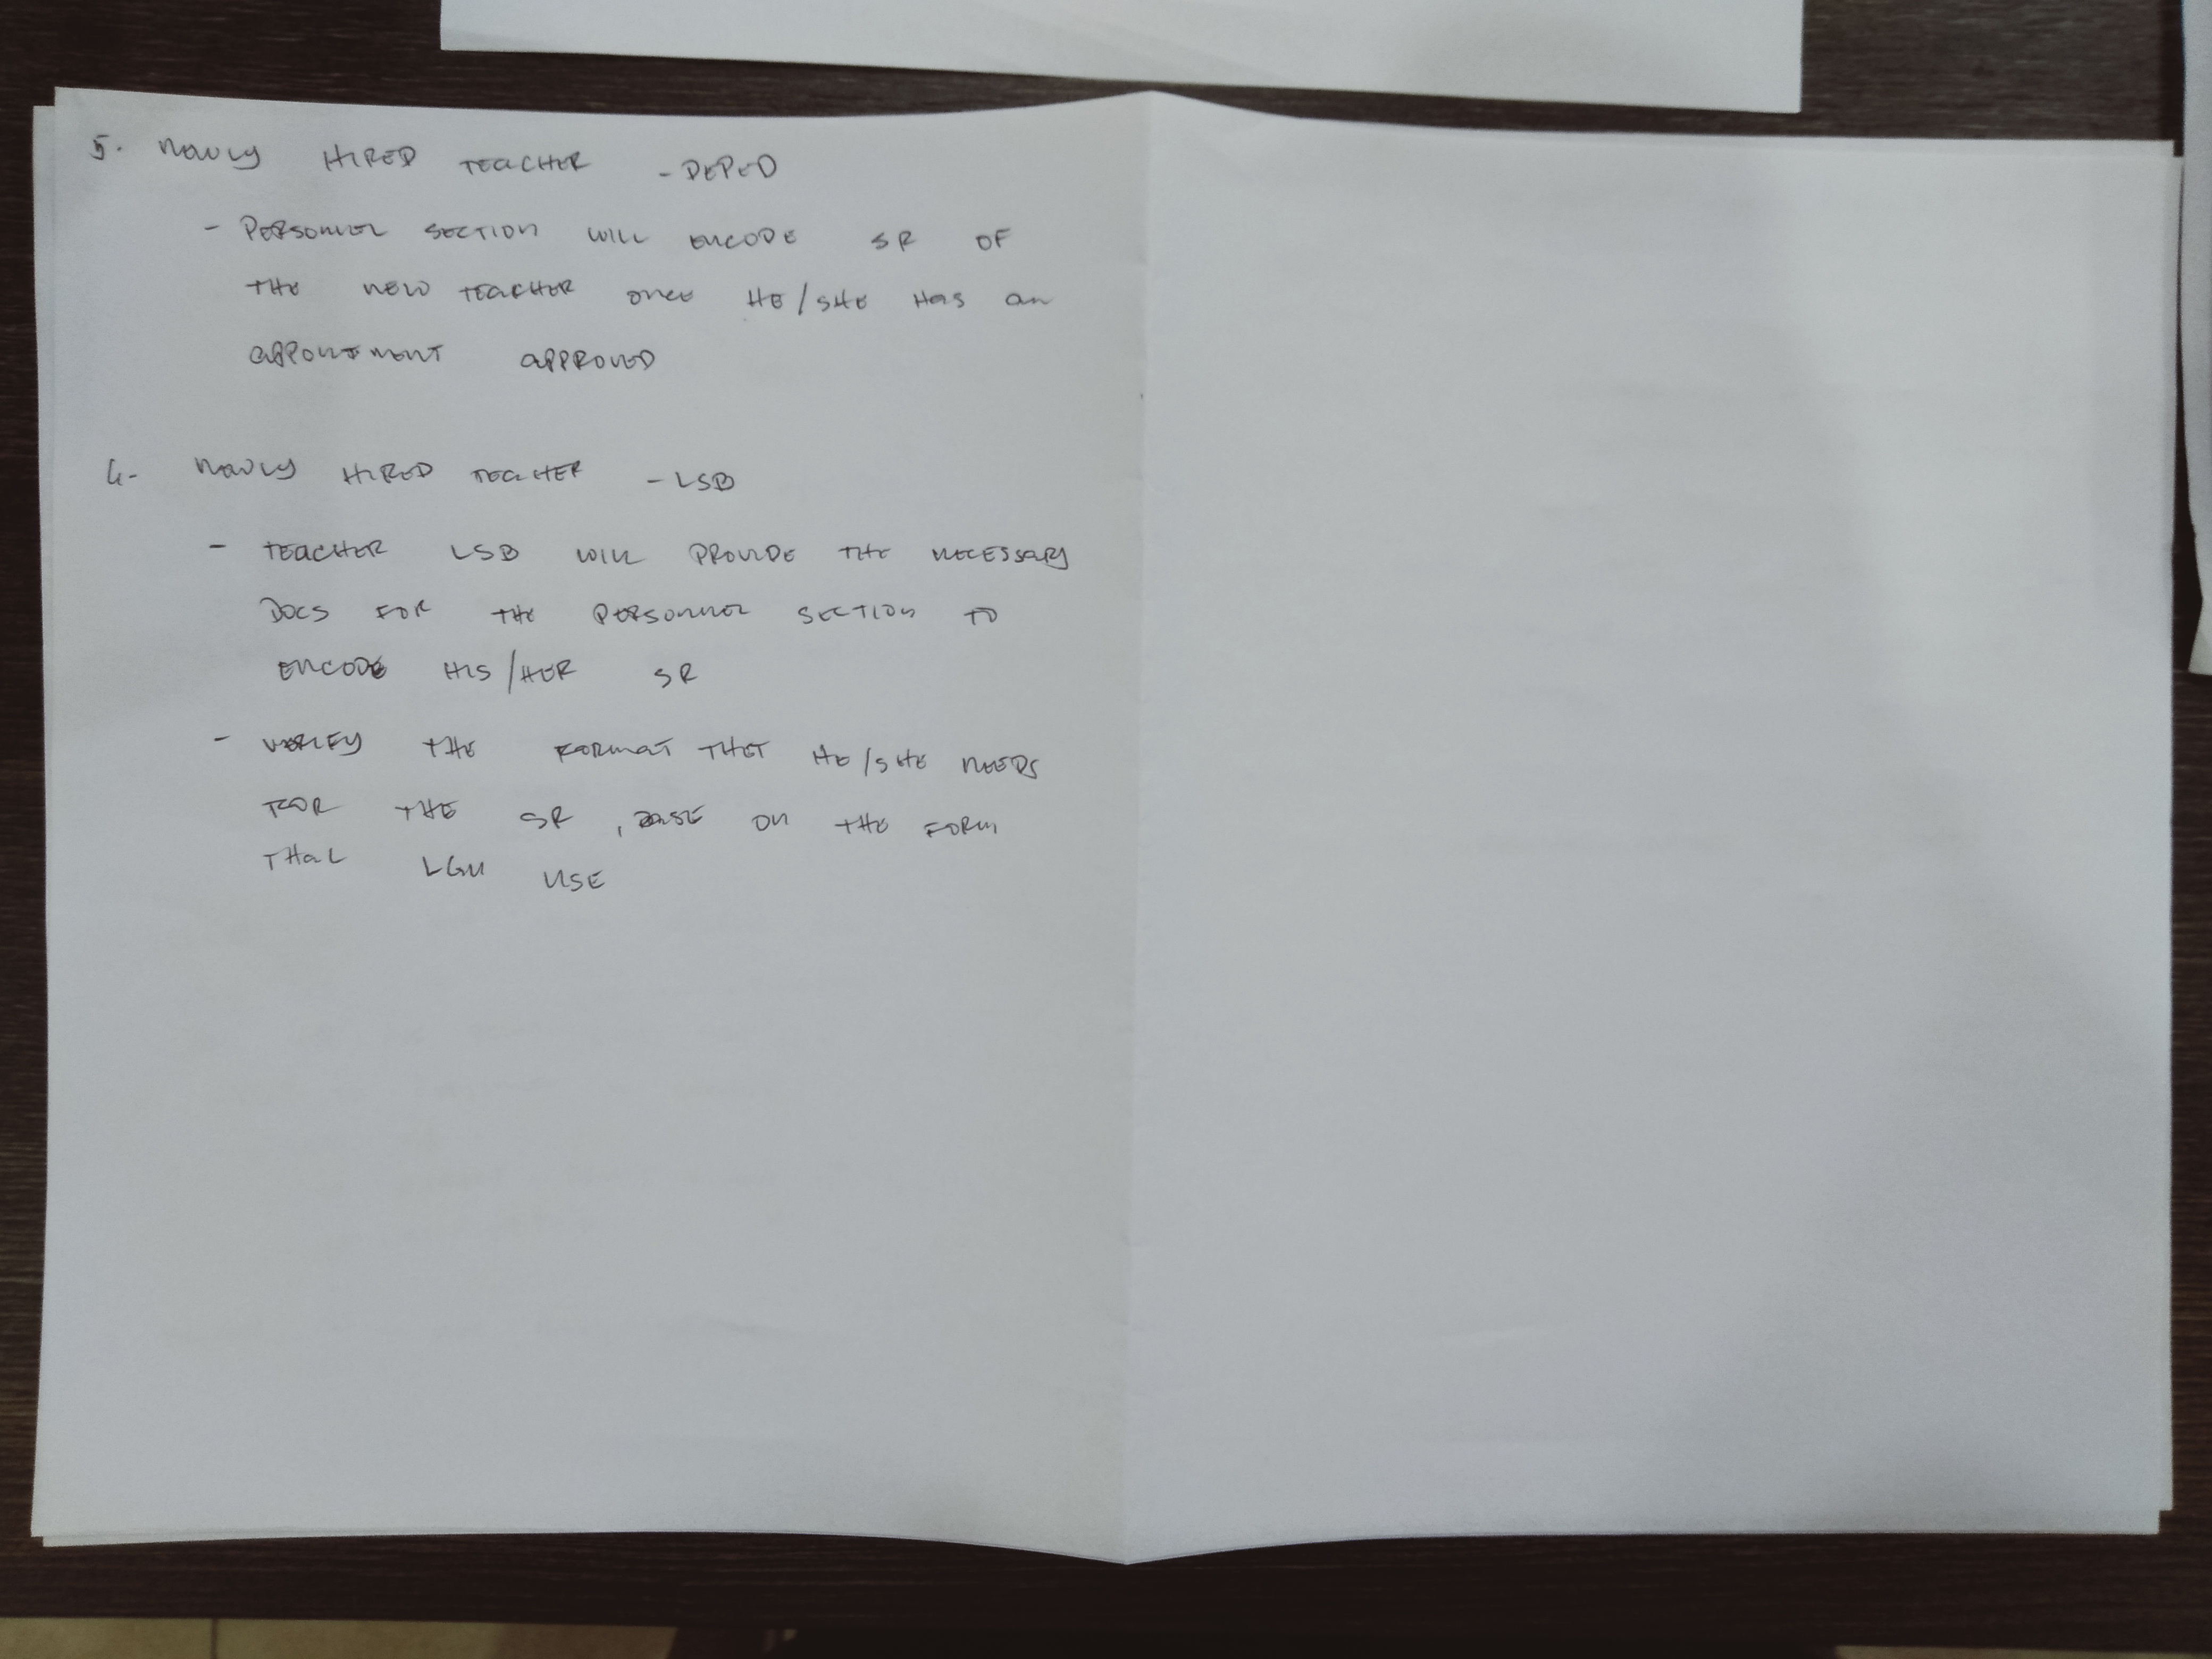 5. NEWLY HIRED TEACHER - DEPED
- PERSONNEL SECTION WILL ENCODE SR OF
THE NEW TEACHER ONCE HE/SHE HAS AN
APPOINTMENT APPROVED
6- NEWLY HIRED TEACHER - LSB
- TEACHER LSB WILL PROVIDE THE NECESSARY
DOCS FOR THE PERSONNEL SECTION TO
ENCODE HIS/HER SR
- VERIFY THE FORMAT THAT HE/SHE NEEDS
FOR THE SR, BASE ON THE FORM
THAT LGU USE